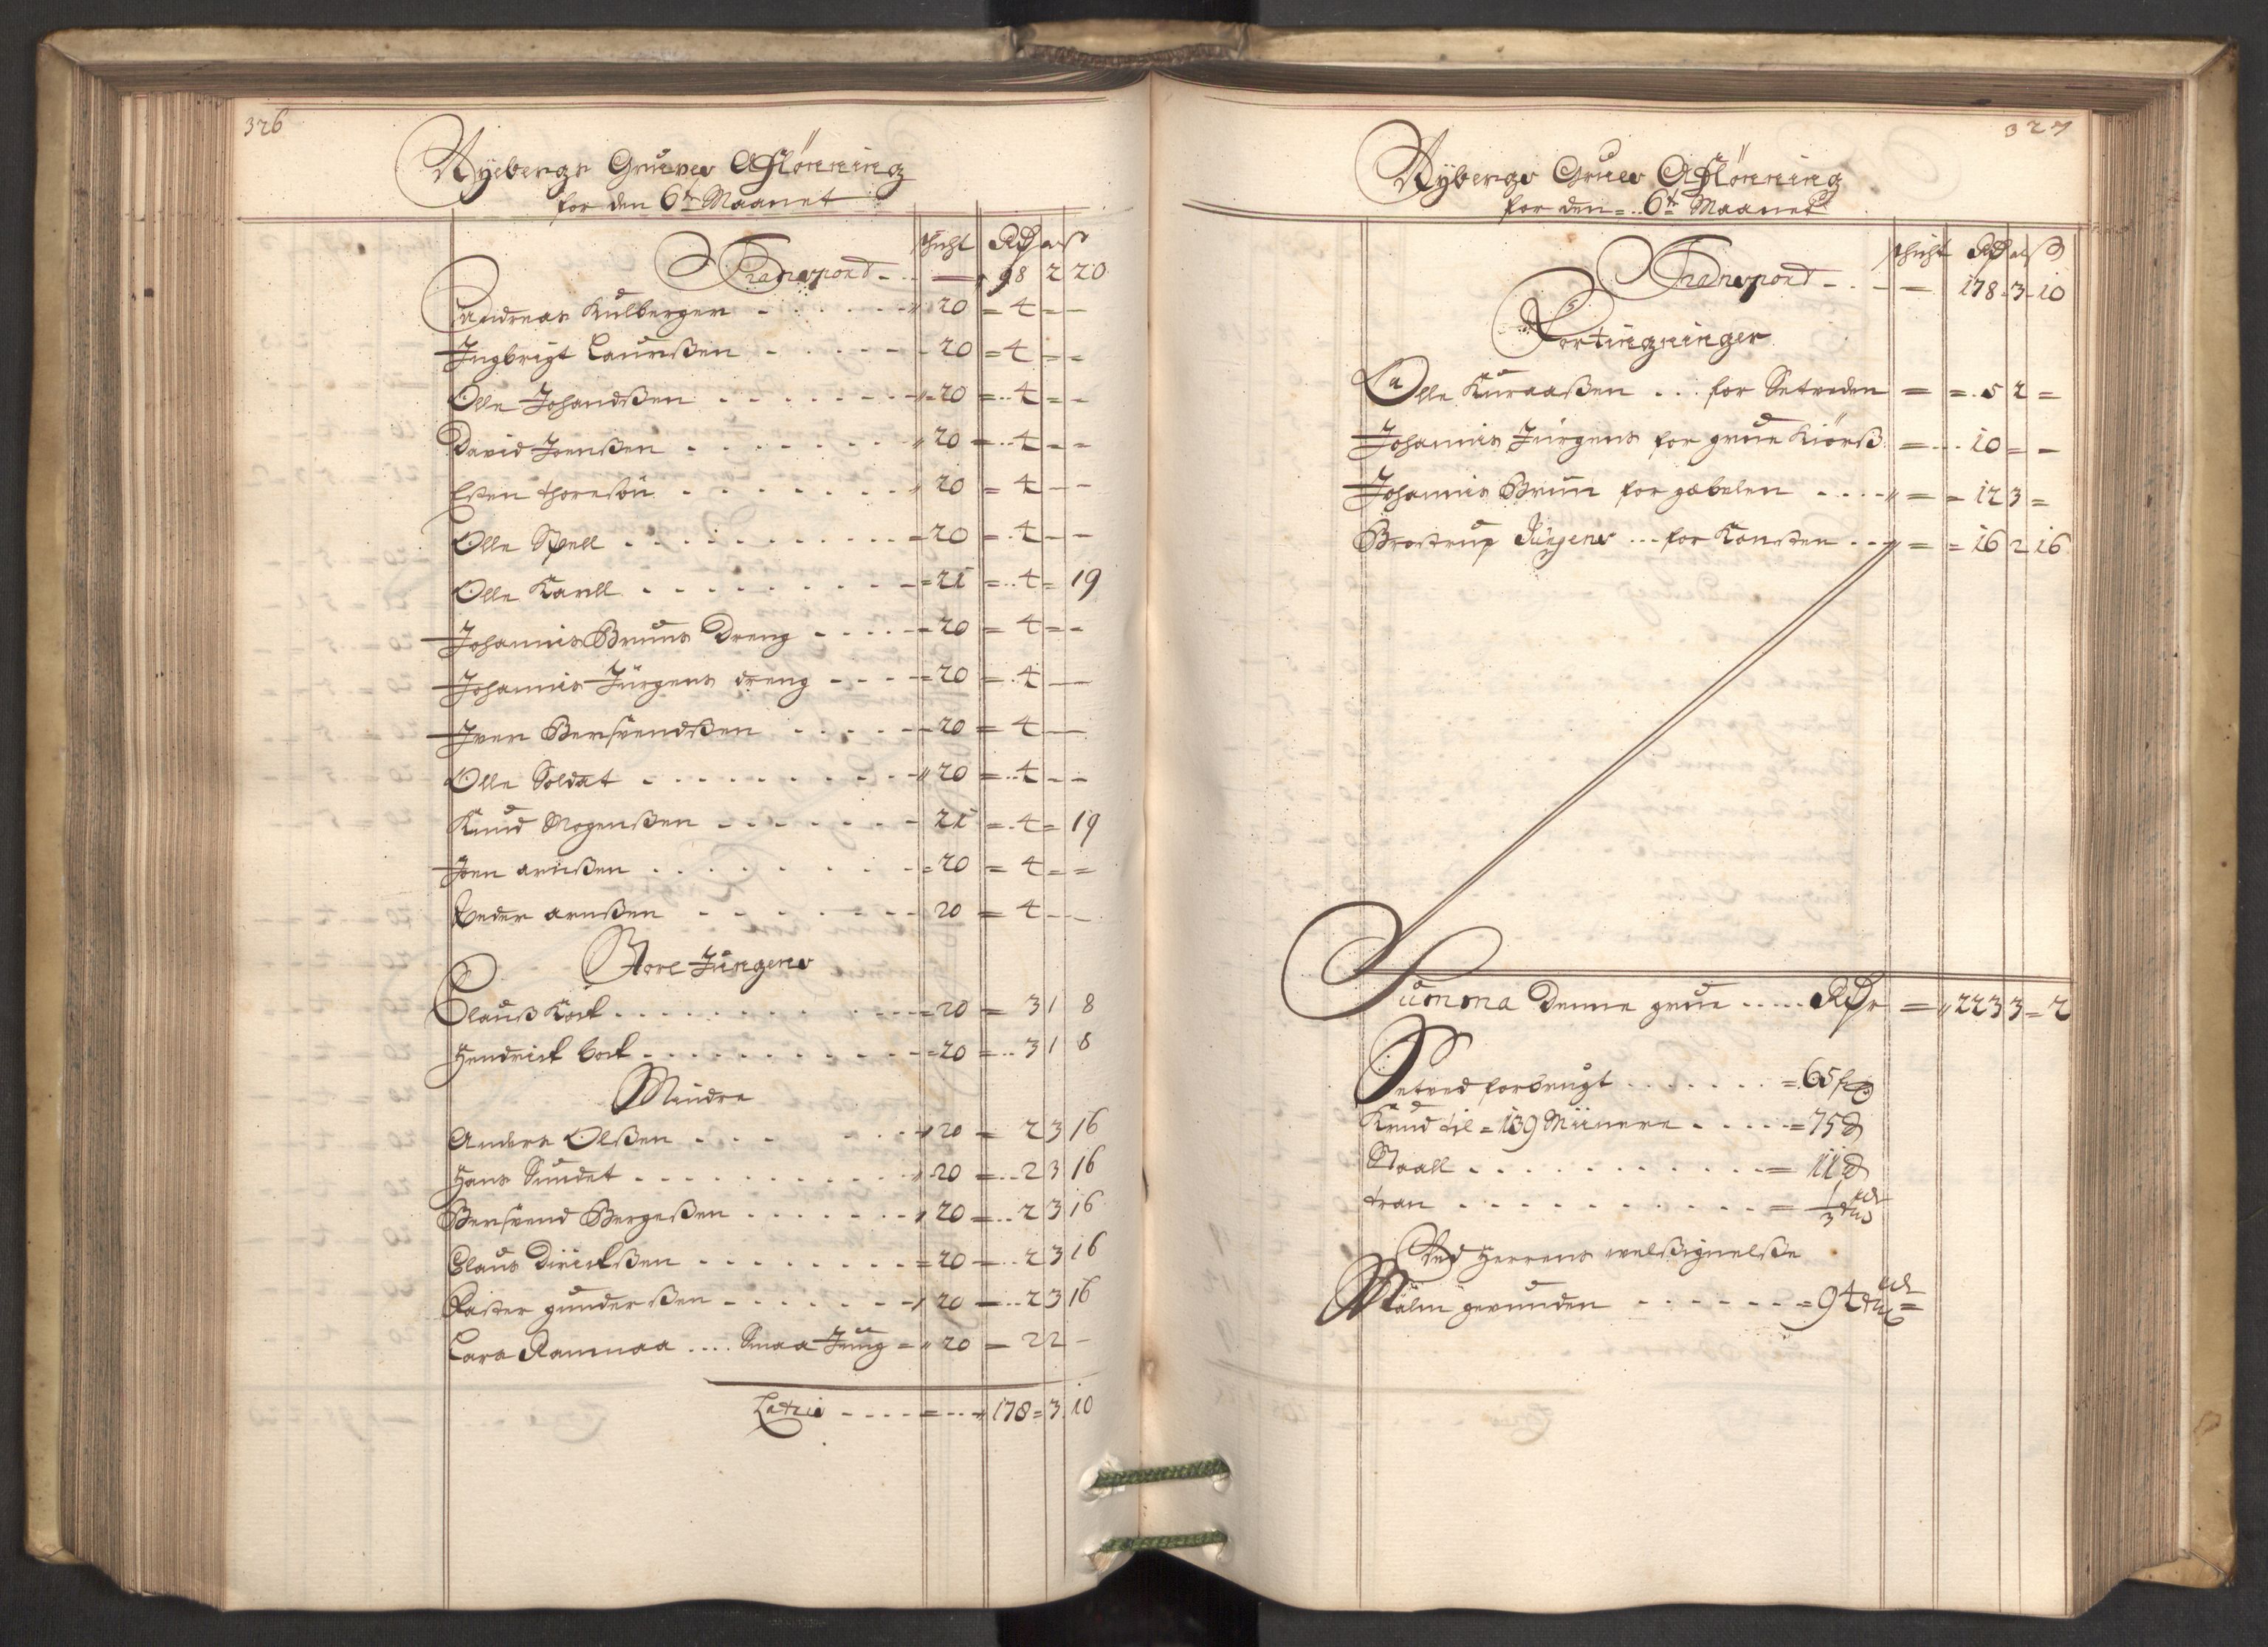 326
Nÿbergs Gruves Aflönning
for den 6te Maanet
schicht Rdr ort ß
Transport - - — 98 2 20
Andreas Kulberger - - - - 20 = 4 = -
Jngbrigt Laurßen - - - - 20 = 4 = =
Olle Johandßen - - - - 20 = 4 = -
David Joenßen - - - - 20 = 4 = =
Esten Thoresön - - - - 20 = 4 - -
Olle Spell - - - - 20 = 4 - -
Olle Karll - - - - 21 = 4 = 19
Johannis Bruns Dreng - - - - 20 = 4 = -
Johannis Jürgens dreng - - - - 20 = 4 —
Jver Bersvendßen - - - - 20 = 4 —
Olle Soldat - - - - 20 = 4 - -
Knud Mogenßen - - - - 21 = 4 = 19
Joen arnßen - - - - 20 = 4 - =
Peder arnßen - - - - 20 = 4 - -
Store Jungens
Clauß Kock - - - - 20 = 3 1 8
Hendrick Cock - - - - 20 = 3 1 8
Mindre
Anders Olßen - - - - 20 = 2 3 16
Hans Sundet - - - - 20 = 2 3 16
Bersvend Bergeßen - - - - 20 = 2 3 16
Claus Dirickßen - - - - 20 = 2 3 16
Paster gunderßen - - - - 20 = 2 3 16
Lars Rammaa .... Smaa Jung = 20 = 2 2 -
Latus - - - - 178 = 3 10
327
Nÿbergs Grues Aflönning
for den 6te Maanet
schicht Rdr ort ß
Transport - - — 178 - 3 - 10
Fortingninger
Olle Kuraaßen ... for Setveden = = 5 2 =
Johannis Jürgens for grue Kiörß = 10 = -
Johannis Brun for gebelen - - - - = = 12 3 =
Brostrup Jürgens ... for Konsten - - = = 16 2 16
Summa Denne grue ..... Rdr = 223 3 = 2
Setved forbrugt - - - - = 65 f
Krud til = 139 Miinere - - - - = 75 ℔
Staall - - - - = 11 ℔
tran - - - - = 1/3 tde
Ved Herrens welßignelße
Malm gevunden - - - - = 94 tdr =